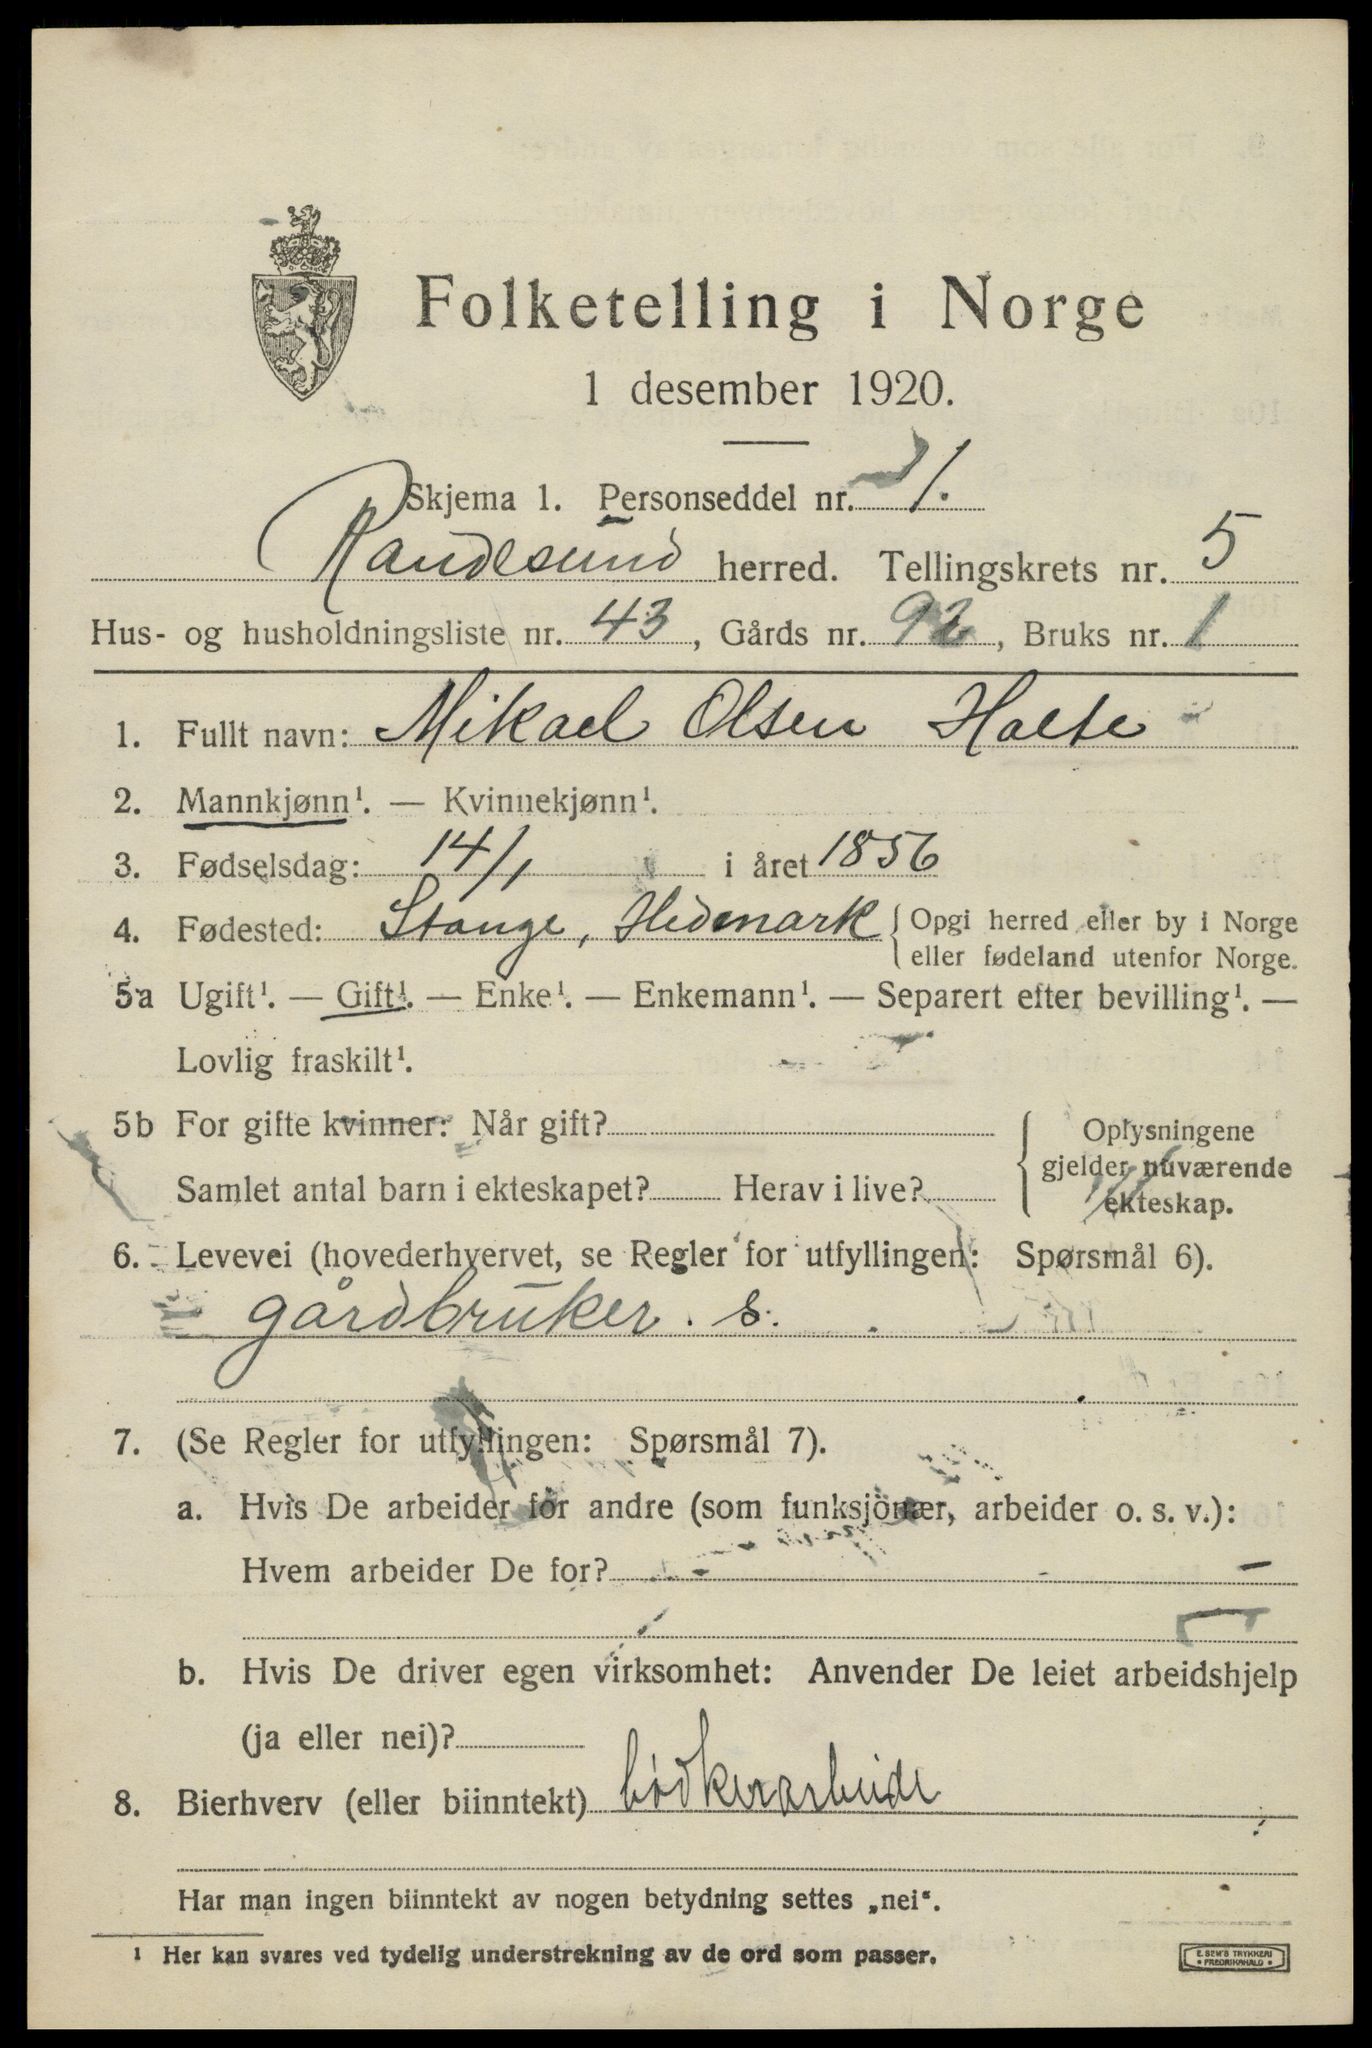 Folketelling i Norge
1 desember 1920.
Skjema 1. Personseddel nr. 1.
Randesund herred. Tellingskrets nr. 5
Hus- og husholdningsliste nr. 43, Gårds nr. 92, Bruks nr. 1
1. Fullt navn: Mikael Olsen Holte
2. Mannkjønn¹. — Kvinnekjønn¹.
3. Fødselsdag: 14/1 i året 1856
4. Fødested: Stange, Hedmark { Opgi herred eller by i Norge
eller fødeland utenfor Norge.
5a Ugift¹. — Gift¹. — Enke¹. — Enkemann¹. — Separert efter bevilling¹. —
Lovlig fraskilt¹.
5b For gifte kvinner: Når gift?
Samlet antal barn i ekteskapet? Herav i live?
{ Oplysningene
gjelder nuværende
ekteskap.
6. Levevei (hovederhvervet, se Regler for utfyllingen: Spørsmål 6).
gårdbruker. s.
7. (Se Regler for utfyllingen: Spørsmål 7).
a. Hvis De arbeider for andre (som funksjonær, arbeider o. s. v.):
Hvem arbeider De for? –
b. Hvis De driver egen virksomhet: Anvender De leiet arbeidshjelp
(ja eller nei)?
8. Bierhverv (eller biinntekt) bødkerarbeide
Har man ingen biinntekt av nogen betydning settes „nei“.
¹ Her kan svares ved tydelig understrekning av de ord som passer.
E. SEM'S TRYKKERI
• FREDRIKSHALD •